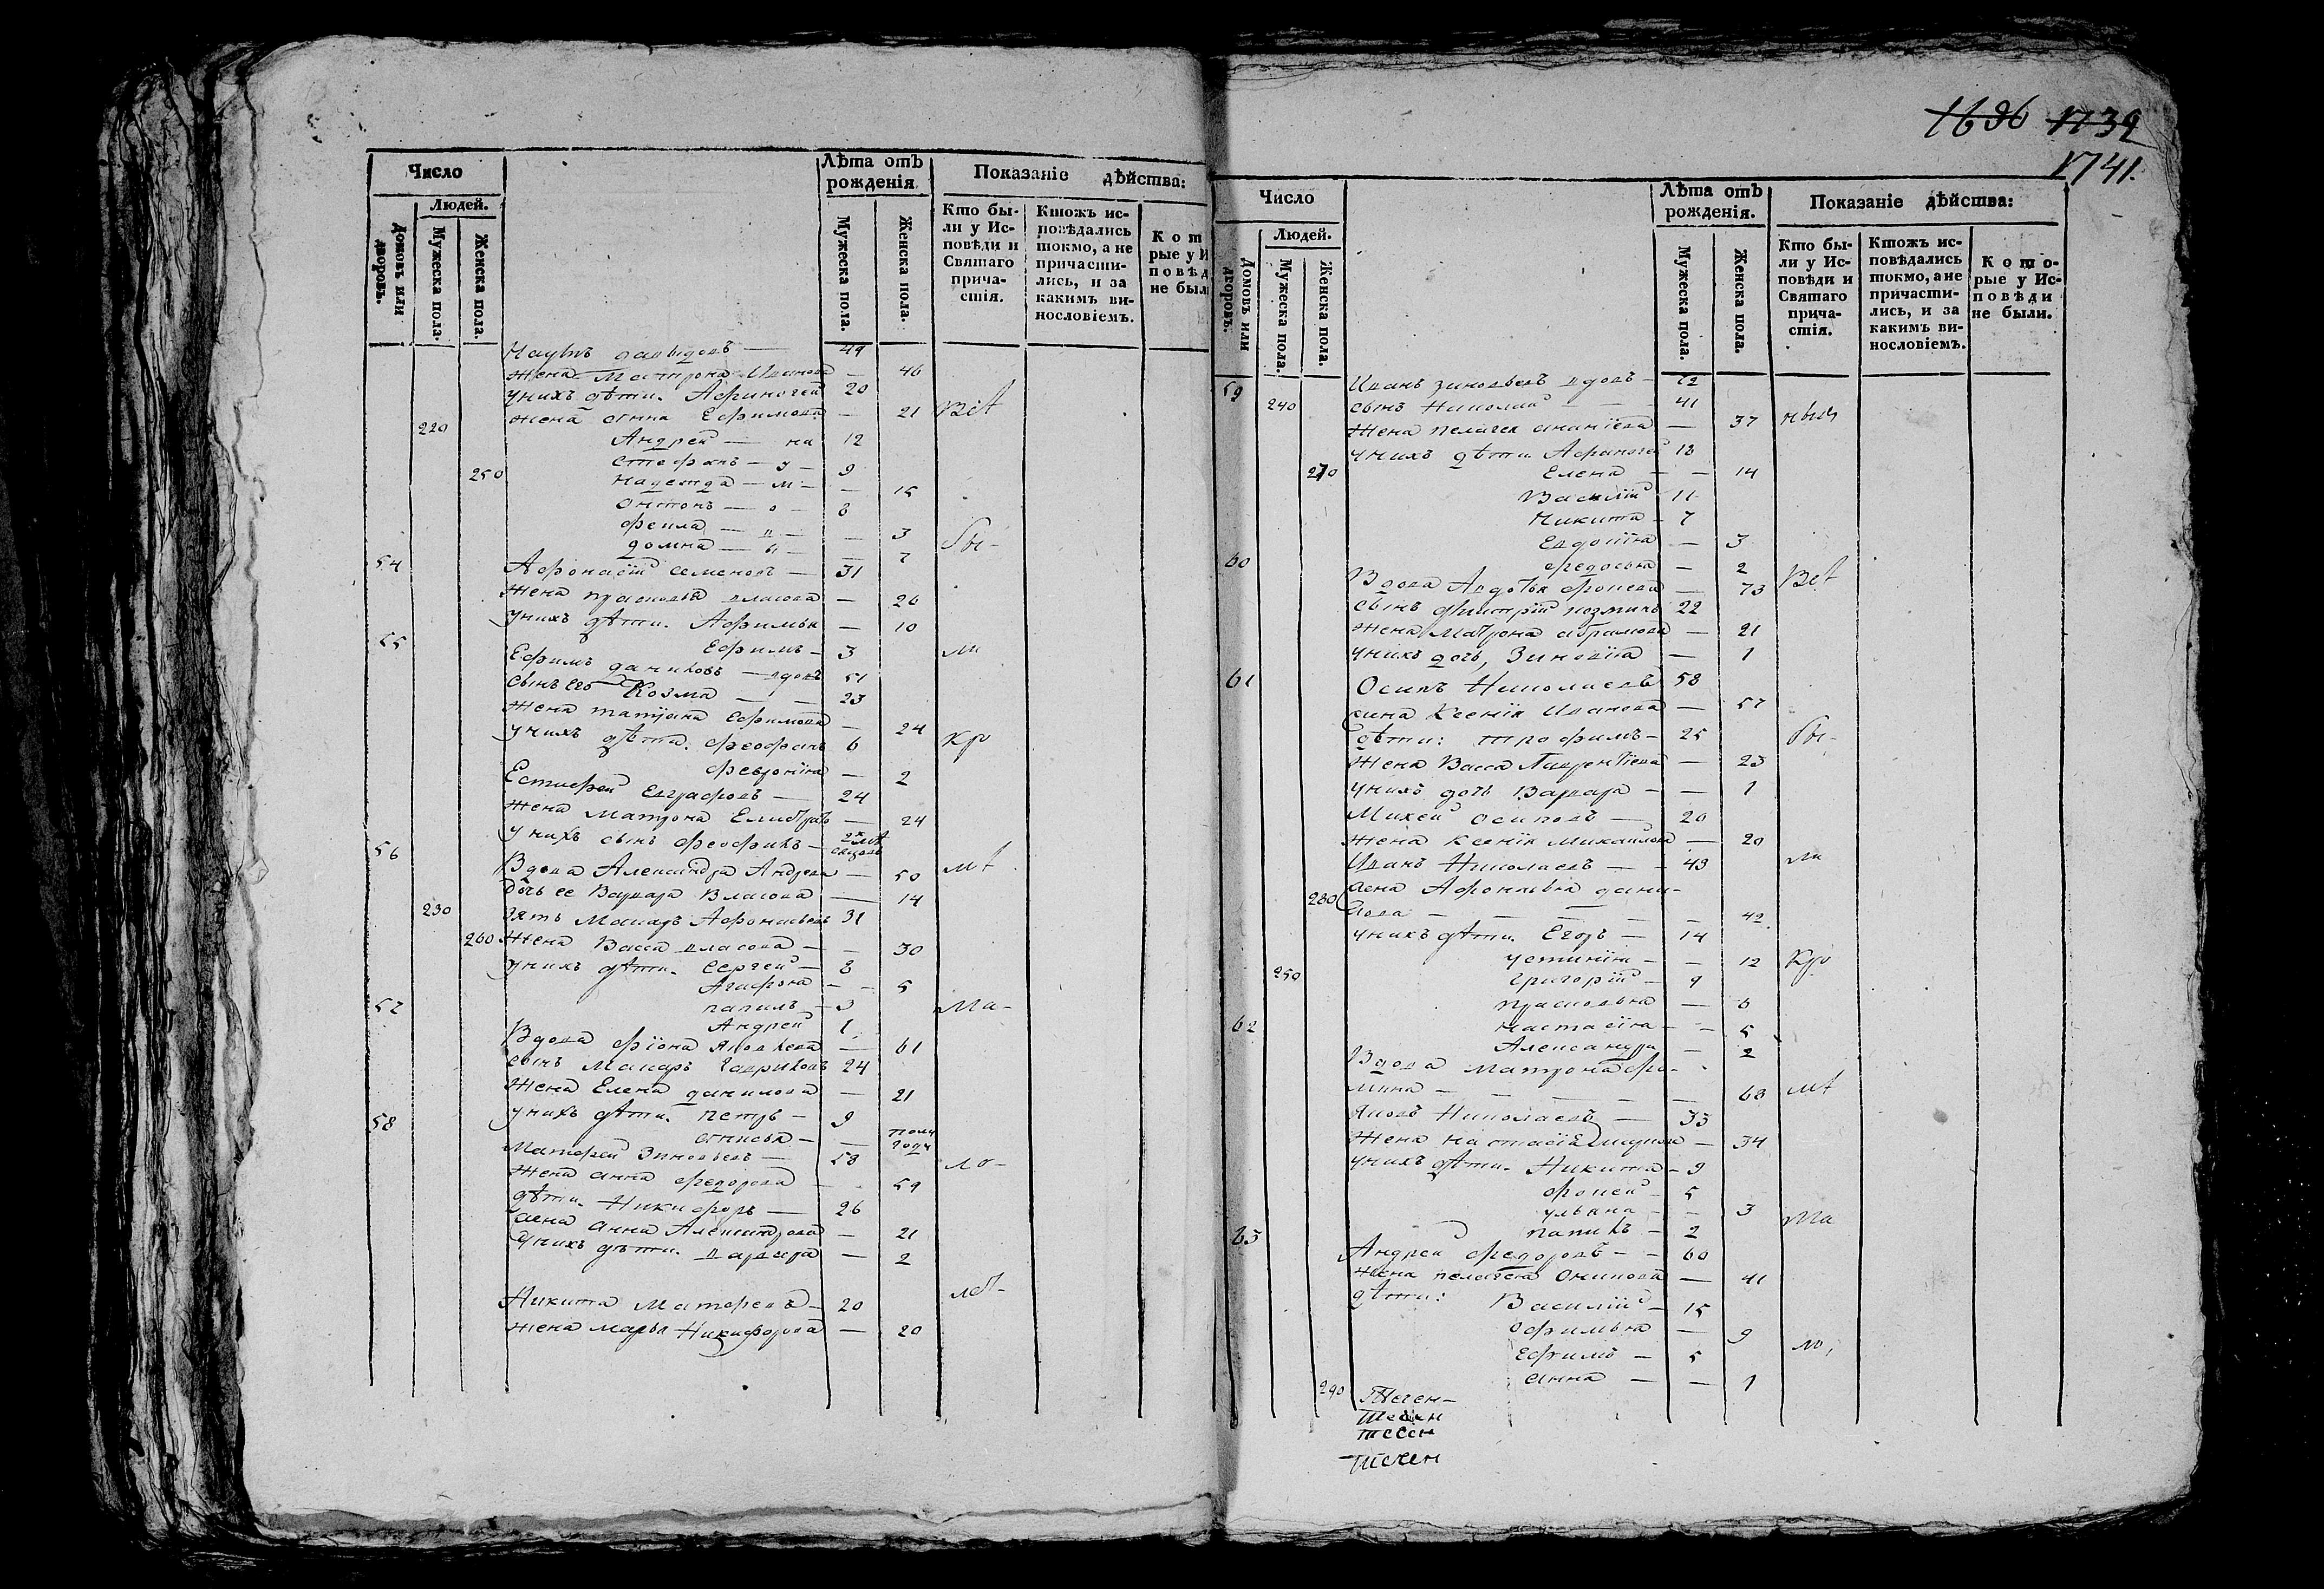 Число
Людей.
Домовъ или дворовъ.
Мужеска пола.
Женска пола.
Лѣта отъ рожденія
Мужеска пола.
Женска пола.
Показаніе дѣйства:
Кто были у Исповѣди и Святаго причастія.
Ктожъ исповѣдались токмо, а не причастились, и за какимъ винословіемъ.
Кот
рые у И
повѣд
не был
Наумъ давыдовъ — 49
жена Матрона Иванова — 46
у нихъ дѣти. Афиногей 20
жена анна Ефимова — 21 Всѣ
220 Андрей — на 12
стефанъ — у — 9
250 надежда — м — — 15
Антонъ — о — 8
феила — в — — 3
домна — ы — — 7 бы-
54 Афонасій семеновъ — 31
жена прасковья власова — 26
у нихъ дѣти. Афимья — 10
Ефимъ — 3 ли
55 Ефимъ даниловъ — вдовъ 51
сынъ его Козма — 23
жена татіана Ефимова — 24
у нихъ дѣти. феофанъ 6 кро
феврониа — 2
Естифей Евграфовъ — 24
жена матрона Елистрат — 24
у нихъ сынъ феофилъ —
56 Вдова Александра Андреева — 50 мѣ
дочь ее Варвара Власова — 14
230 зять Макаръ Афонасьевъ 31
260 жена Васса власова — 30
у нихъ дѣти. Сергей — 8
Агафона — 5
папилъ — 3 Ма-
Андрей 1
57 Вдова фіона Яковлева — 61
сынъ Макаръ Гавриловъ 24
жена Елена данилова — 21
у нихъ дѣти. петръ — 9
анисья — — полугода
58 Матфей Зиновьевъ — 58 ло-
жена анна федорова — 59
дѣти. Никифоръ — 26
жена анна Александрова — 21
у нихъ дѣти. варвара — 2
Никита Матфеевъ — 20 лѣт-
жена марья Никифорова — 20
1696 1739
1741.
Число
Людей.
Домовъ или дворовъ.
Мужеска пола.
Женска пола.
Лѣта отъ рожденія.
Мужеска пола.
Женска пола.
Показаніе дѣйства:
Кто были у Исповѣди и Святаго причастія.
Ктожъ исповѣдались токмо, а не причастились, и за какимъ винословіемъ.
Которые у Исповѣди не были.
59 Иванъ зиновьевъ вдовъ — 72
240 сынъ Николай — 41
жена пелагея ананіева — 37 ныя
у нихъ дѣти Афиногей 18
270 Елена — — 14
Василій 11
Никита — 7
Евдокіа — 3
федосья — 2
60 Вдова Авдотья фокеева — 73 Всѣ
сынъ дмитрій козминъ 22
жена Матрона абрамова — 21
у нихъ дочь, Зиновіа — 1
61 Осипъ Николаевъ 58
жена Ксеніа Иванова — 57
дѣти: трофимъ — 25 бы-
жена Васса Лаврентіева — 23
у нихъ дочь Варвара — — 1
Михей осиповъ — 20
жена ксеніа михайлова — 20
Иванъ Николаевъ — — 43 ли
280 жена Афонасья дани-
лова — — — — — 42
у нихъ дѣти. Егоръ — 14
устиніа — — 12 Кро
250 григорій — 9
прасковья — 6
62 настасіа — — 5
Александра — 2
Вдова матрона фо-
мина — — — — — 68 мѣ
яковъ Николаевъ — 33
жена настасіа наумова — 34
у нихъ дѣти. Никита — 9
фокей — 5
ульяна — — 3 Ма
папилъ — 2
63 Андрей федоровъ — — 60
жена пелагея Осипова — 41
дѣти: Василій — 15
офимья — 9 ло,
Ефимъ — 5
290 анна — — 1